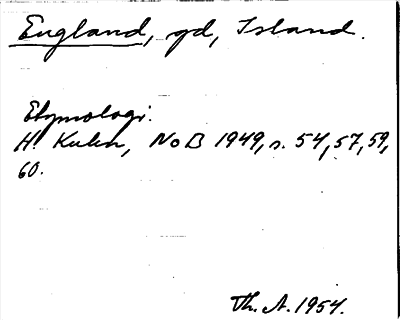 England, gd, Island.
Etymologi:
H. Kuhn, NoB 1949, s. 54, 57, 59,
60.
Th. A. 1954.